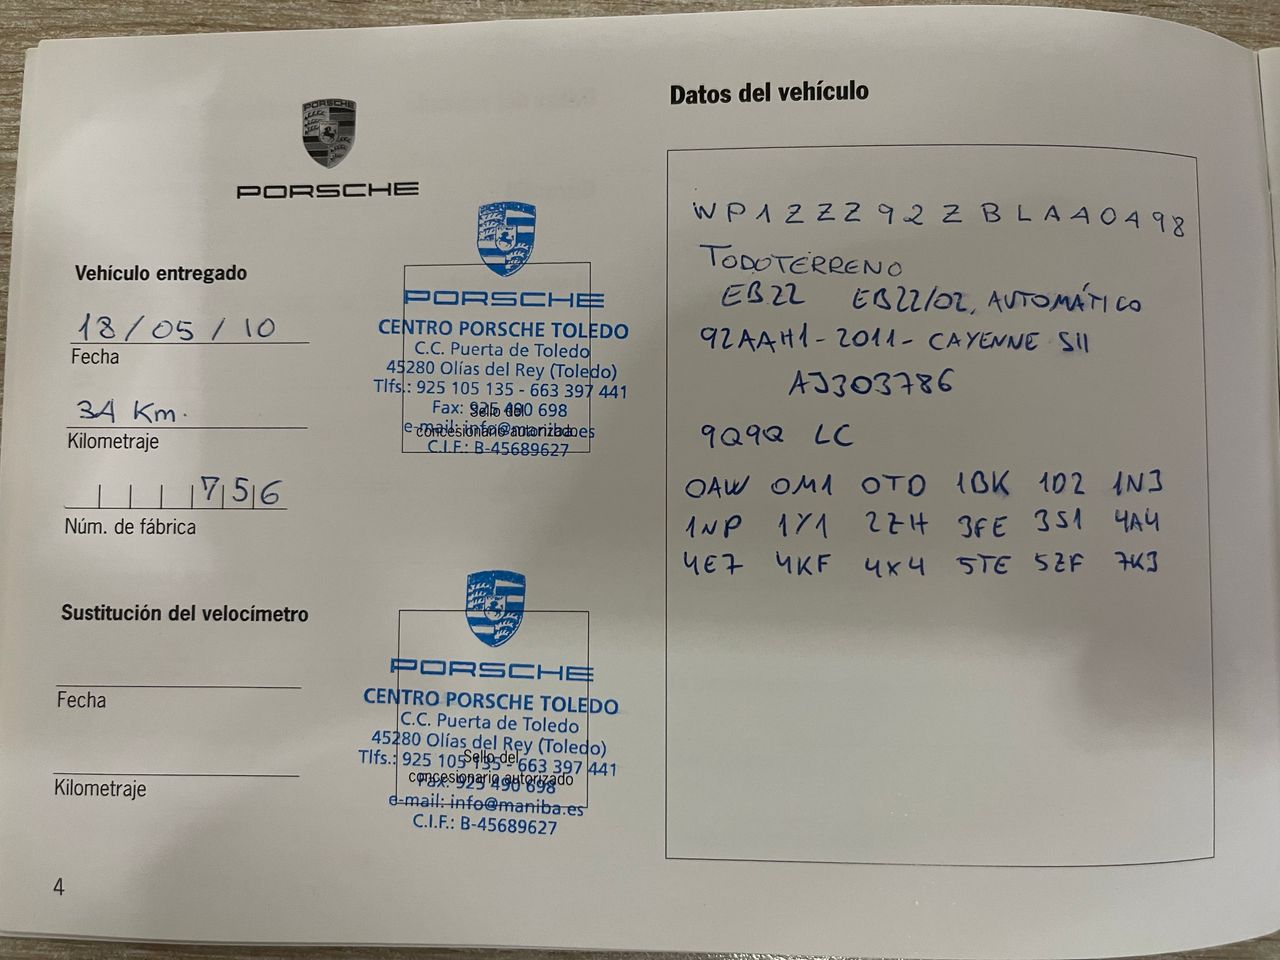 PORSCHE
PORSCHE
Vehículo entregado
18/05/10
Fecha
31 Km.
Kilometraje
756
Núm. de fábrica
PORSCHE
CENTRO PORSCHE TOLEDO
C.C. Puerta de Toledo
45280 Olías del Rey (Toledo)
Tlfs.: 925 105 135 - 663 397 441
Fax: 925 490 698
Sello del
e-mail: info@maniba.es
concesionario autorizado
C.I.F.: B-45689627
Sustitución del velocímetro
Fecha
Kilometraje
PORSCHE
CENTRO PORSCHE TOLEDO
C.C. Puerta de Toledo
45280 Olías del Rey (Toledo)
Tlfs.: 925 105 135 - 663 397 441
Sello del
concesionario autorizado
Fax: 925 490 698
e-mail: info@maniba.es
C.I.F.: B-45689627
4
Datos del vehículo
WP1ZZZ92ZBLAA0498
TODOTERRENO
EB22 EB22/02, AUTOMÁTICO
92AAH1-2011- CAYENNE SII
AJ303786
9Q9Q LC
0AW 0M1 0TD 1BK 1D2 1N3
1NP 1Y1 2ZH 3FE 3S1 4A4
4E7 4KF 4X4 5TE 5ZF 7K3